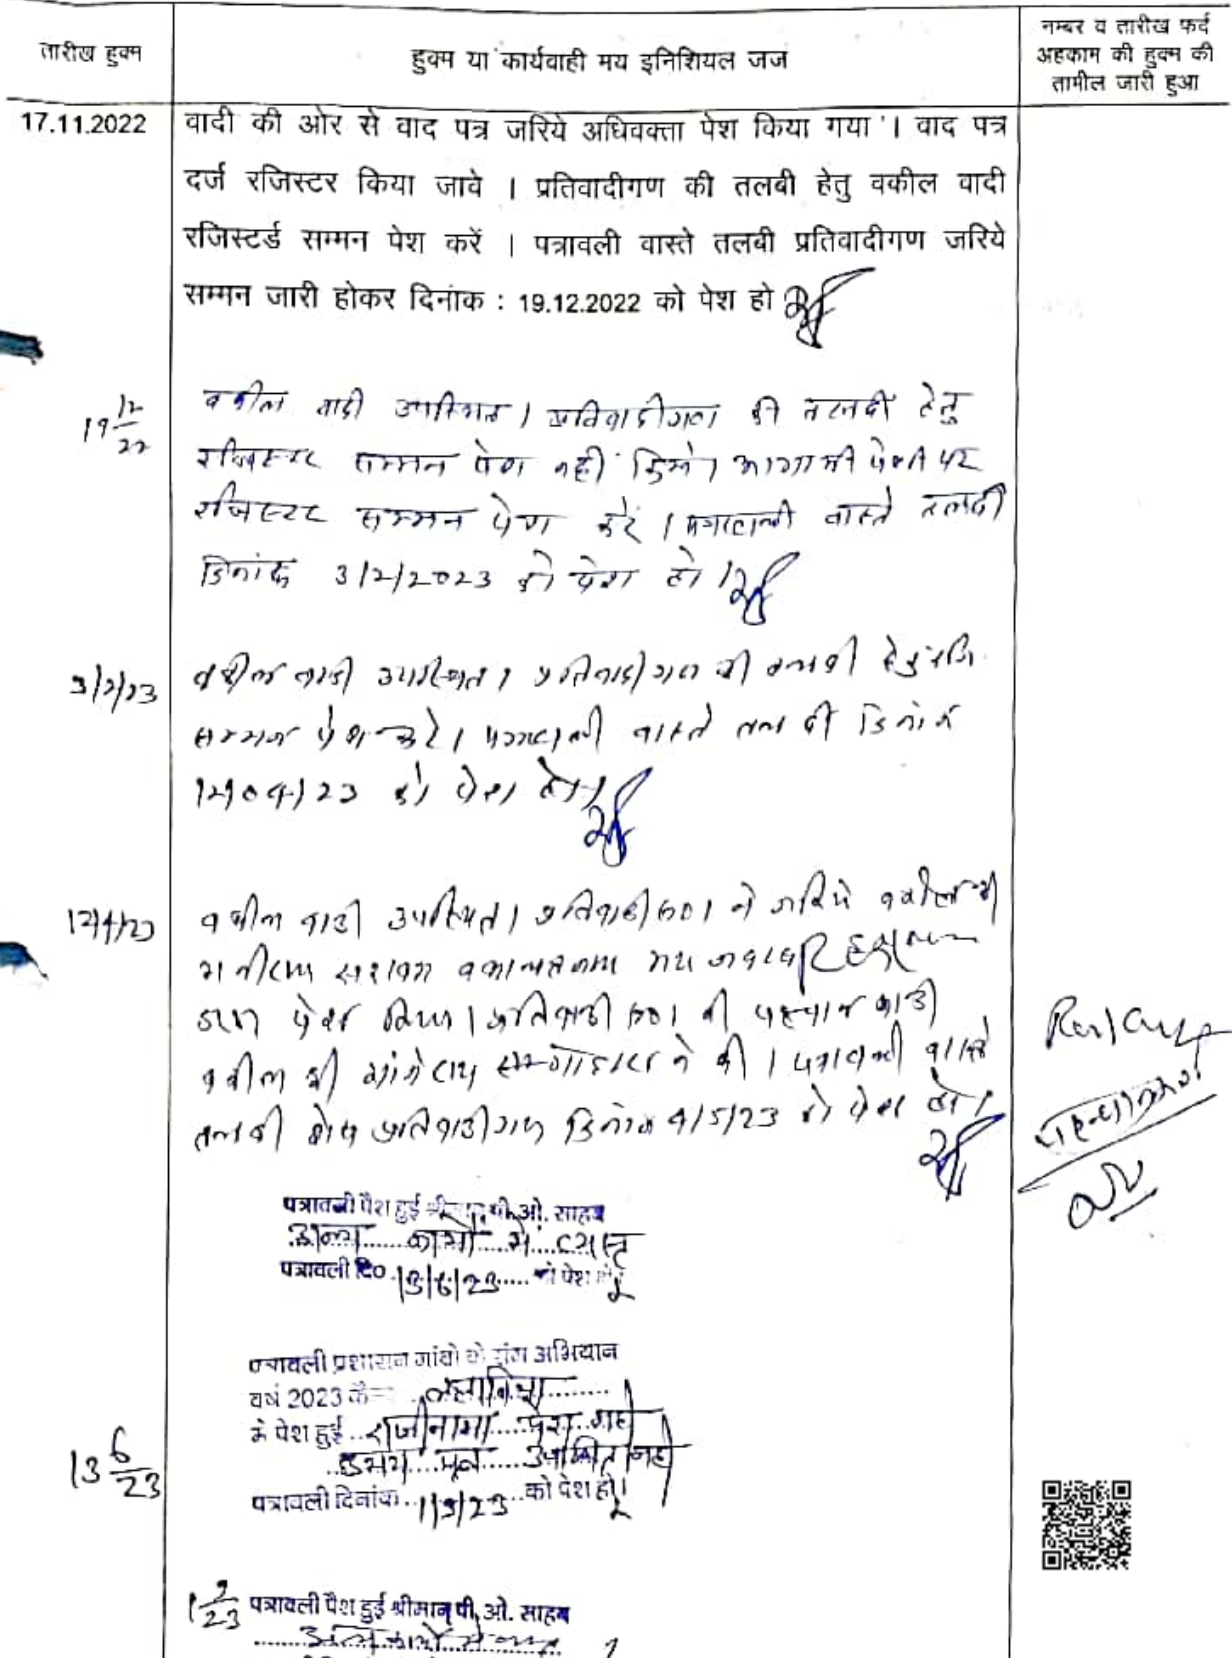 तारीख हुक्म
हुक्म या कार्यवाही मय इनिशियल जज
नम्बर व तारीख फर्द
अहकाम की हुक्म की
तामील जारी हुआ
17.11.2022
वादी की ओर से वाद पत्र जरिये अधिवक्ता पेश किया गया । वाद पत्र
दर्ज रजिस्टर किया जावे । प्रतिवादीगण की तलबी हेतु वकील वादी
रजिस्टर्ड सम्मन पेश करें । पत्रावली वास्ते तलबी प्रतिवादीगण जरिये
सम्मन जारी होकर दिनांक : 19.12.2022 को पेश हो
19 12/22
वकील वादी उपस्थित । प्रतिवादीगण की तलबी हेतु
रजिस्टर सम्मन पेश नहीं किये। आगामी पेशी पर
रजिस्टर सम्मन पेश करें । पत्रावली वास्ते तलबी
दिनांक 3/2/2023 को पेश हो ।
3/2/23
वकील वादी उपस्थित । प्रतिवादीगण की तलबी हेतु रजि.
सम्मन पेश करे । पत्रावली वास्ते तलबी दिनांक
12/04/23 को पेश हो ।
12/4/23
वकील वादी उपस्थित । प्रतिवादी सं० 1 ने जरिये वकील श्री
वकालतनामा मय
पेश किया । प्रतिवादी सं० 1 की पहचान वादी
वकील श्री ने की । पत्रावली वास्ते
तलबी शेष प्रतिवादीगण दिनांक 9/5/23 को पेश हो ।
पत्रावली पेश हुई श्रीमान पी. ओ. साहब
अन्य कार्यो में व्यस्त
पत्रावली दि० 13/6/23 को पेश हो
13 6/23
पत्रावली प्रशासन गांवो के संग अभियान
वर्ष 2023 कैम्प
मे पेश हुई राजीनामा पेश नही
उभय पक्ष उपस्थित नही
पत्रावली दिनांक 1/9/23 को पेश हो।
1 9/23
पत्रावली पेश हुई श्रीमान पी. ओ. साहब
अन्य कार्यो मे व्यस्त